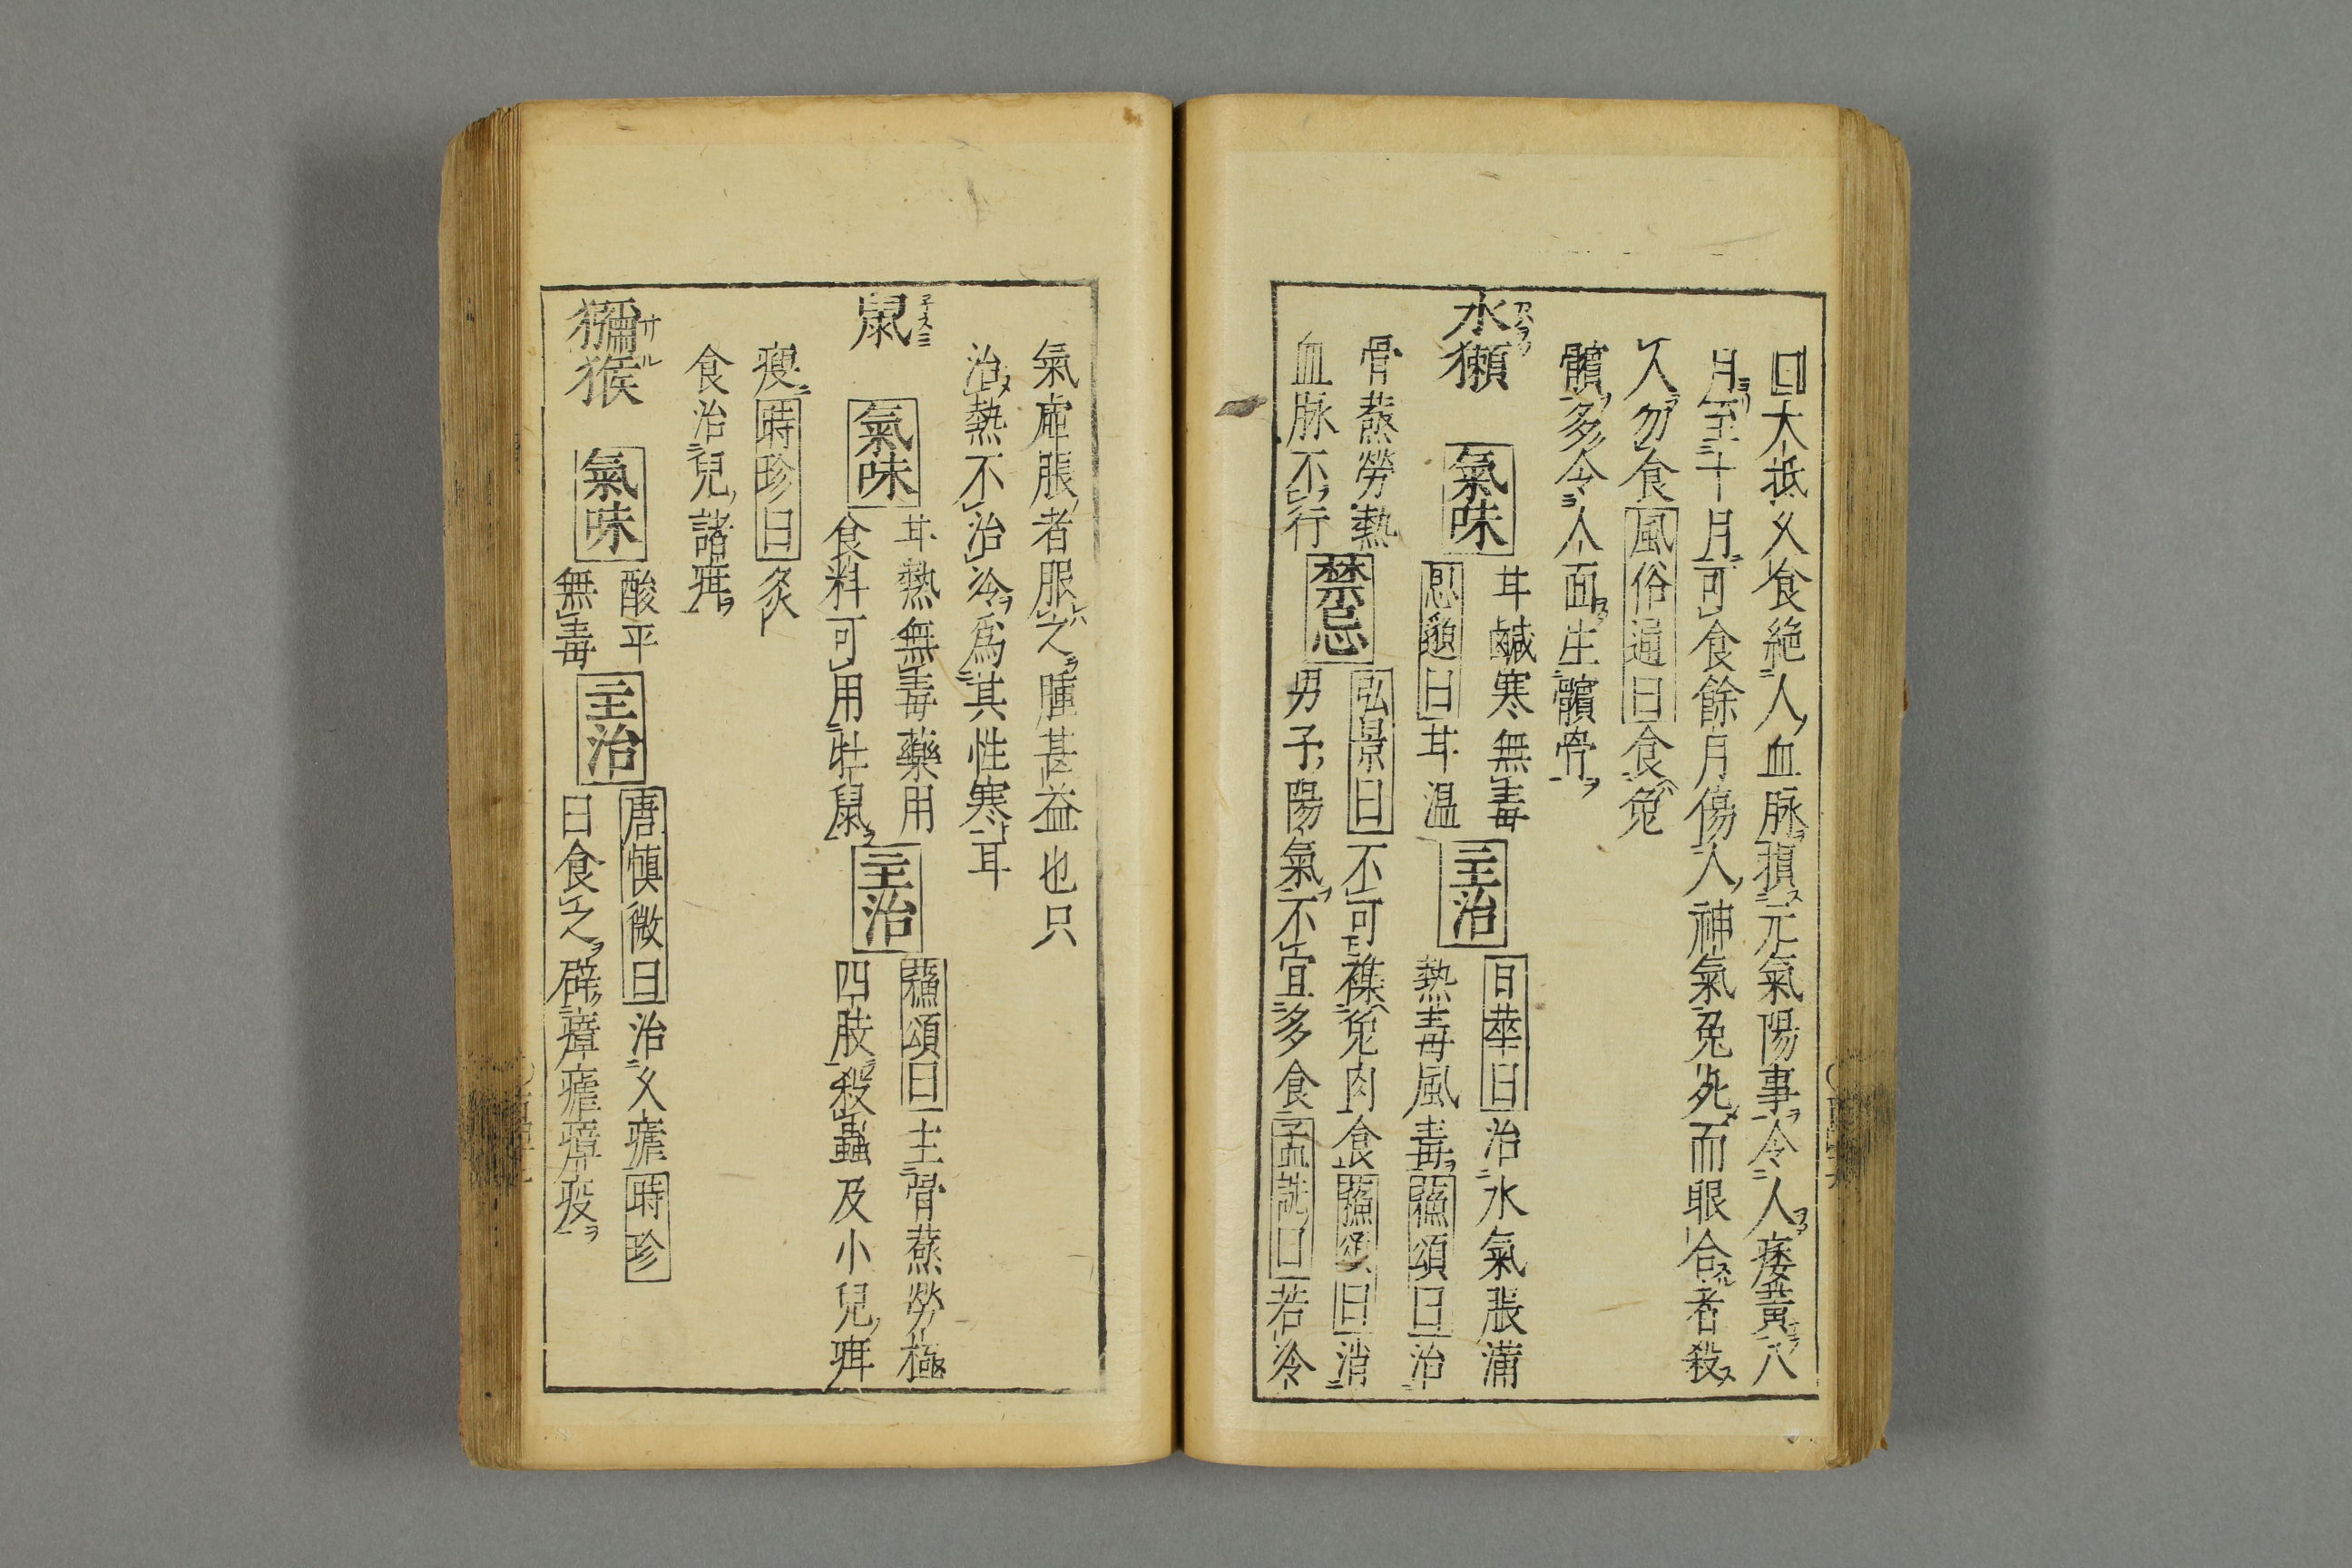 曰大抵久食絶人血脉損元氣陽事令人痿黃八
月至十月可食餘月傷人神氣兔死而眼合者殺
人勿食風俗通曰食兔
髕多令人面生髕骨
水獺
氣味
甘鹹寒無毒
思邈曰甘温
主治
日華曰治水氣脹滿
熱毒風毒蘇頌曰治
骨蒸勞熱
血脉不行
禁忌
弘景曰不可襍兔肉食蘇頌曰消
男子陽氣不宜多食孟詵曰若冷
氣虛脹者服之腫甚益也只
治熱不治冷爲其性寒耳
鼠
子スミ
氣味
甘熱無毒藥用
食料可用牡鼠
主治
蘇頌曰主骨蒸勞極
四肢殺蟲及小兒疳
瘦時珍曰炙
食治兒諸疳
獼猴
サル
氣味
酸平
無毒
主治
唐慎微曰治久瘧時珍
曰食之辟瘴瘧瘴疫